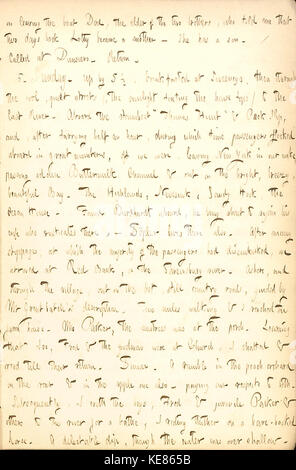 on leaving the boat Dod, the elder of the two brothers, who told me that
two days back Lotty became a mother — she has a son.
Called at Duncan's. Return.
5. Sunday. Up by 5½. Breakfasted at Sweeny's, then through
the cool, quiet streets, the sunlight slanting the house tops, to the
East River. Aboard the steamboat "Thomas Hunt" @ Peck Slip,
and after tarrying half an hour, during which time passengers flocked
aboard in great numbers, off we were leaving New York in our wake
passing adown Buttermilk Channel & out in the bright, breezy
beautiful Bay. The Highlands, Nevesink, Sandy Hook the
Ocean House. Frank Bardwell aboard, he being about to rejoin his
wife who rusticates there. Stephens was there also. After many
stoppages, at which the majority of the passengers had disembarked, we
arrived at Red Bank, on the Shrewsbury river. Ashore, and
through the village out on the hot still country roads, guided by
Mr Greatbatch's description. Two miles walking & I reached the
farm house. Mrs Parker, the mistress was at the porch. Learning
that Joe, Fred & the women were at Church, I chatted &
read till their return. Dinner. A ramble in the peach orchard
in the rear & in the apple one also — paying our respects to both.
Subsequently, I with the boys, Fred & juvenile Parker &
others to the river for a bathe, I riding thither on a bare-backed
horse. A delectable dip, though the water was over shallow.
alamy
Image ID: KE865B
www.alamy.com